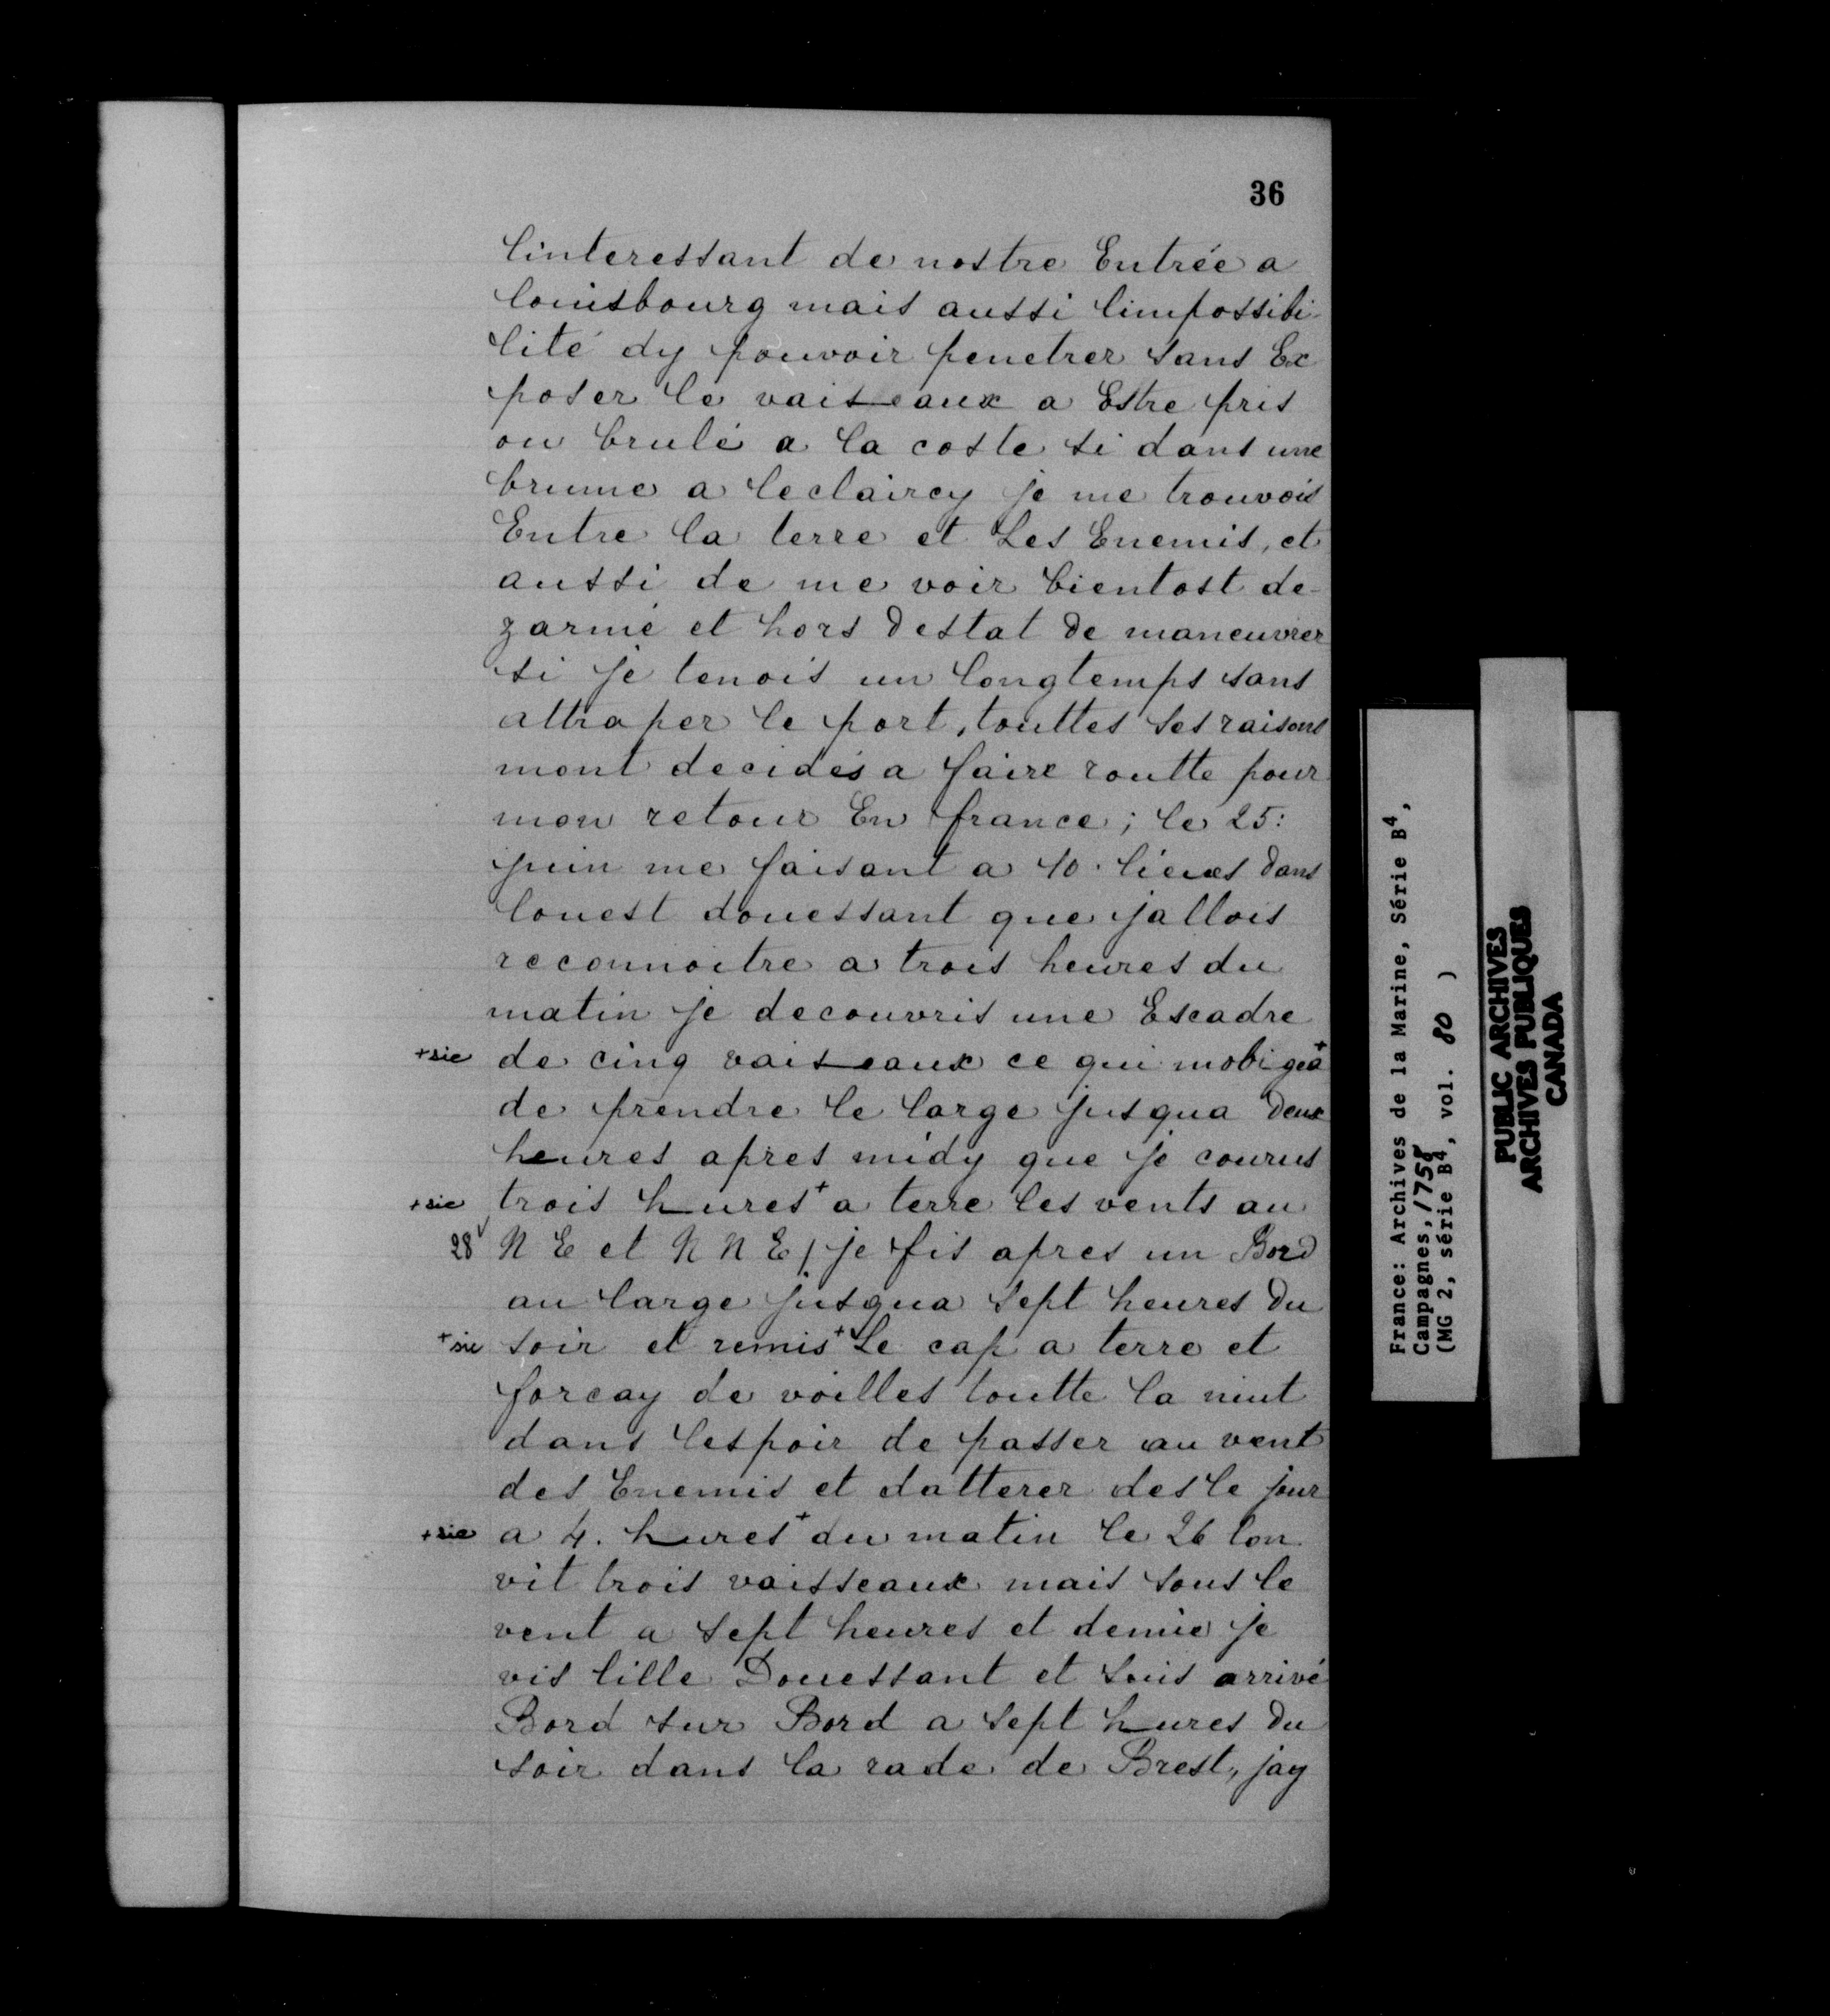 36
linteressant de nostre Entrée a
louisbourg mais aussi limpossibi-
lité dy pouvoir penetrer sans Ex
poser le vaisseaux a Estre pris
ou brulé a la coste si dans une
brume a leclaircy je me trouvois
Entre la terre et Les Enemis, et
aussi de me voir bientost de-
zarmé et hors destat de maneuvrer
si je tenois un longtemps sans
attraper le port, touttes ses raisons
mont decidés a faire routte pour
mon retour En france; le 25:
juin me faisant a 10. lieues dans
louest douessant que jallois
reconnoitre a trois heures du
matin je decouvris une Escadre
+sic de cinq vaisseaux ce qui mobigea+
de prendre le large jusqua deux
heures apres midy que je courus
+sic trois hures+ a terre les vents au
28 N E et N N E / je fis apres un Bord
au large jusqua sept heures du
+sic soir et remis+ Le cap a terre et
forcay de voilles toutte la nuit
dans lespoir de passer au vent
des Enemis et datterer des le jour
+sic a 4. hures+ du matin le 26 lon
vit trois vaisseaux mais sous le
vent a sept heures et demie je
vis lille Douessant et suis arrivé
Bord sur Bord a sept hures du
soir dans la rade de Brest, jay
France: Archives de la Marine, Série B4,
Campagnes, 1758
(MG 2, série B4, vol. 80 )
PUBLIC ARCHIVES
ARCHIVES PUBLIQUES
CANADA